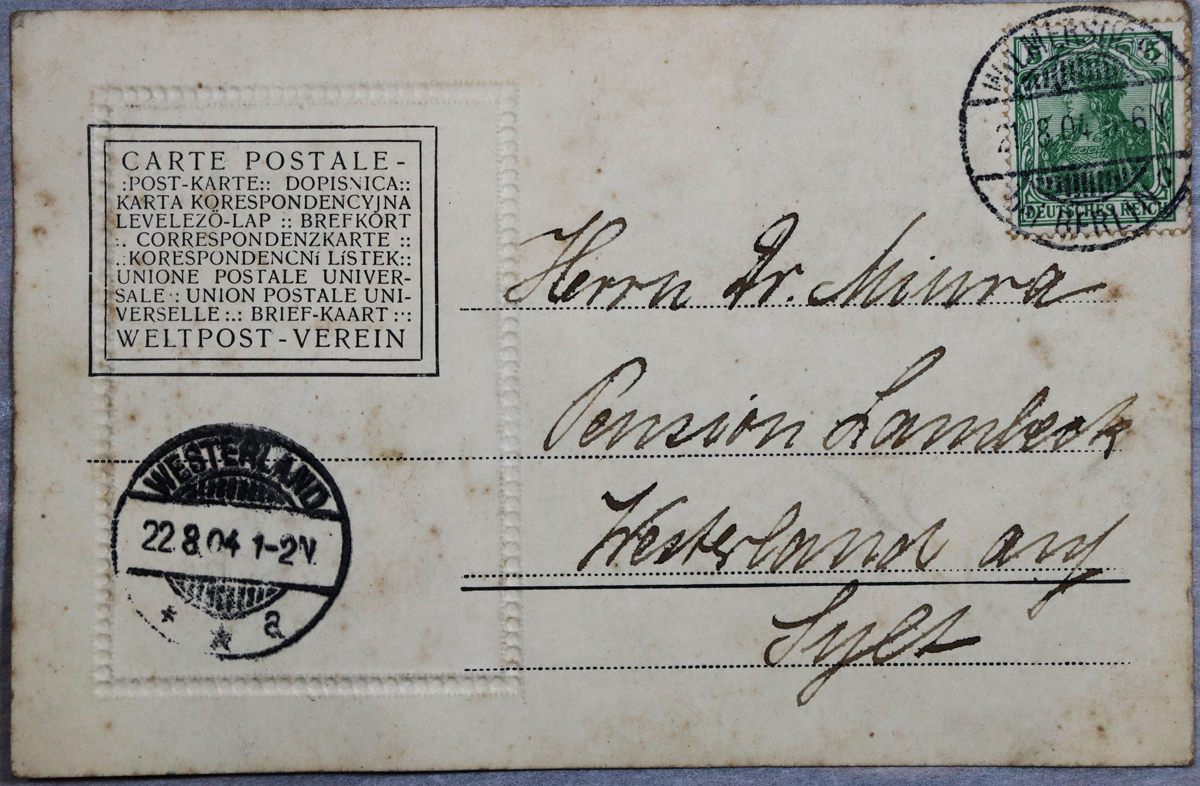 CARTE POSTALE-
:POST-KARTE:: DOPISNICA::
KARTA KORESPONDENCYJNA
LEVELEZŐ-LAP :: BREFKORT
:. CORRESPONDENZKARTE ::
.:KORESPONDENCNÍ LÍSTEK::
UNIONE POSTALE UNIVER-
SALE:: UNION POSTALE UNI-
VERSELLE:.: BRIEF-KAART:·:
WELTPOST-VEREIN
WILMERSDORF
21.8.04. 5-6N
BERLIN
5 5
DEUTSCHES REICH
Herrn Dr. Miura
Pension Lambeck
Westerland auf
Sylt
WESTERLAND
22.8.04 1-2N.
* * a